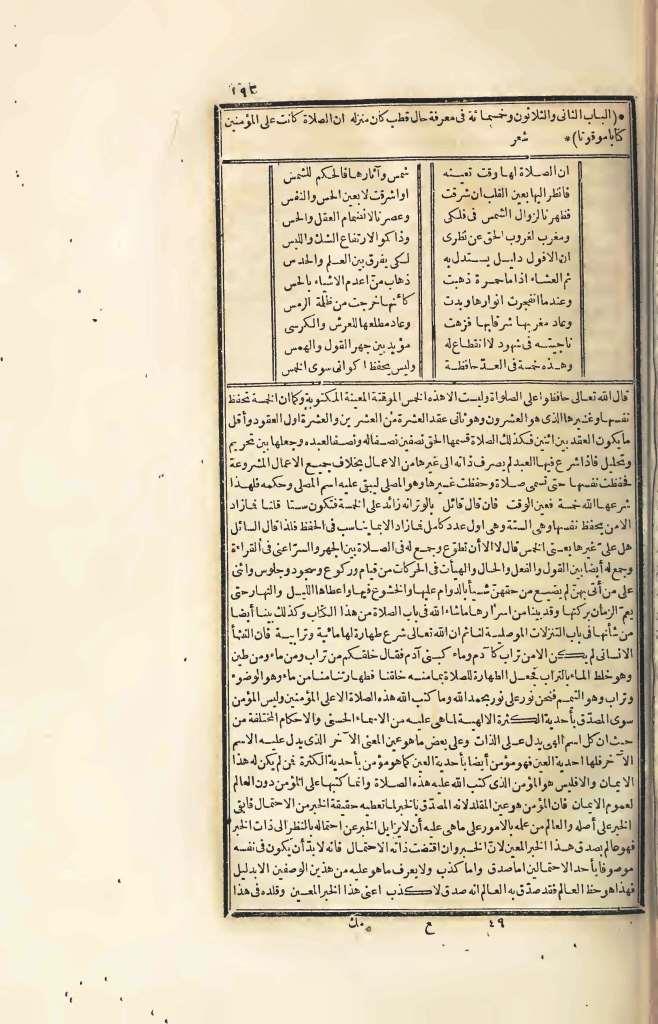 ١٩٣
*(الباب الثانى والثلاثون وخمسمائة فى معرفة حال قطب كان منزله ان الصلاة كانت على المؤمنين
كتابا موقوتا)* شعر
ان الصلاة لها وقت تعينه شمس وآثارها فالحكم للشمس
فانظر اليها بعين القلب ان شرقت او اشرقت لا بعين الحس والنفس
فظهرنا لزوال الشمس فى فلكى وعصرنا لانضمام العقل والحس
ومغرب لغروب الحق عن نظرى وذاكموا لارتفاع الشك واللبس
ان الافول دليل يستدل به لكى يفرق بين العلم والحدس
ثم العشاء اذا ما حمرة ذهبت ذهاب من اعدم الاشياء بالحس
وعندما انفجرت انوارها وبدت كأنها خرجت من ظلمة الرمس
وعاد مغربها شرقا بها فزهت وعاد مطلعها للعرش والكرسى
ناجيته فى شهود لا انقطاع له مؤيد بين جهر القول والهمس
وهذه خمسة فى العد حافظة وليس يحفظ اكوانى سوى الخمس
قال الله تعالى حافظوا على الصلوات وليست الا هذه الخمس الموقتة المعينة المكتوبة وكما ان الخمسة تحفظ
نفسها وغيرها الذى هو العشرون وهو ثانى عقد العشرة من العشرين والعشرة اول العقود وأقل
ما يكون العقد بين اثنين فكذلك الصلاة قسمها الحق نصفين نصفا له ونصفا لعبده وجعلها بين تحريم
وتحليل فاذا شرع فيها العبد لم يصرف ذاته الى غيرها من الاعمال بخلاف جميع الاعمال المشروعة
فحفظت نفسها حتى تسمى صلاة وحفظت غيرها وهو المصلى ليبقى عليه اسم المصلى وحكمه فلهذا
شرعها الله خمسة فعين الوقت فان قال قائل بالوتر انه زائد على الخمسة فتكون ستا قلنا فما زاد
الا من يحفظ نفسها وهى الستة وهى اول عدد كامل فما زاد الا بما يناسب فى الحفظ فلذا قال السائل
هل علىّ غيرها يعنى الخمس قال لا الا أن تطوّع وجمع له فى الصلاة بين الجهر والسر اعنى فى القراءة
وجمع له أيضا بين القول والفعل والحال والهيآت فى الحركات من قيام وركوع وسجود وجلوس واثنى
على من أتى بهن لم يضيع من حقهن شيأ بالدوام عليها والخشوع فيها واعطاها الليل والنهار حتى
يعم الزمان بركتها وقد بينا من اسرارها ما شاء الله فى باب الصلاة من هذا الكتاب وكذلك بينا أيضا
من شأنها فى باب التنزلات الموصلية لنا ثم ان الله تعالى شرع طهارة لها مائية وترابية فان النشأ
الانسانى لم يكن الا من تراب كآدم وماء كبنى آدم فقال خلقكم من تراب ومن ماء ومن طين
وهو خلط الماء بالتراب فجعل الطهارة للصلاة بما منه خلقنا فطهارتنا منا من ماء وهو الوضوء
وتراب وهو التيمم فنحن نور على نور بحمد الله وما كتب الله هذه الصلاة الا على المؤمنين وليس المؤمن
سوى المصدق بأحدية الكثرة الالهية لما هى عليه من الاسماء الحسنى والاحكام المختلفة من
حيث ان كل اسم الهى يدل على الذات وعلى بعض ما هو عين المعنى الآخر الذى يدل عليه الاسم
الآخر فلها احدية العين فهو مؤمن أيضا بأحدية العين كما هو مؤمن بأحدية الكثرة فمن لم يكن له هذا
الايمان والا فليس هو المؤمن الذى كتب الله عليه هذه الصلاة وانما كتبها على المؤمن دون العالم
لعموم الايمان فان المؤمن هو عين المقلد لانه المصدق بالخبر لما تعطيه حقيقة الخبر من الاحتمال فابقى
الخبر على أصله والعالم من علمه بالامور على ماهى عليه أن لا يزايل الخبر عن احتماله بالنظر الى ذات الخبر
فهو عالم بصدق هذا الخبر المعين لانّ الخبر وان اقتضت ذاته الاحتمال فانه لا بدّ أن يكون فى نفسه
موصوفا بأحد الاحتمالين اما صدق واما كذب ولا يعرف ما هو عليه من هذين الوصفين الا بدليل
فهذا هو حظ العالم فقد صدّق به العالم انه صدق لا كذب اعنى هذا الخبر المعين وقلده فى هذا
٤٩ ع